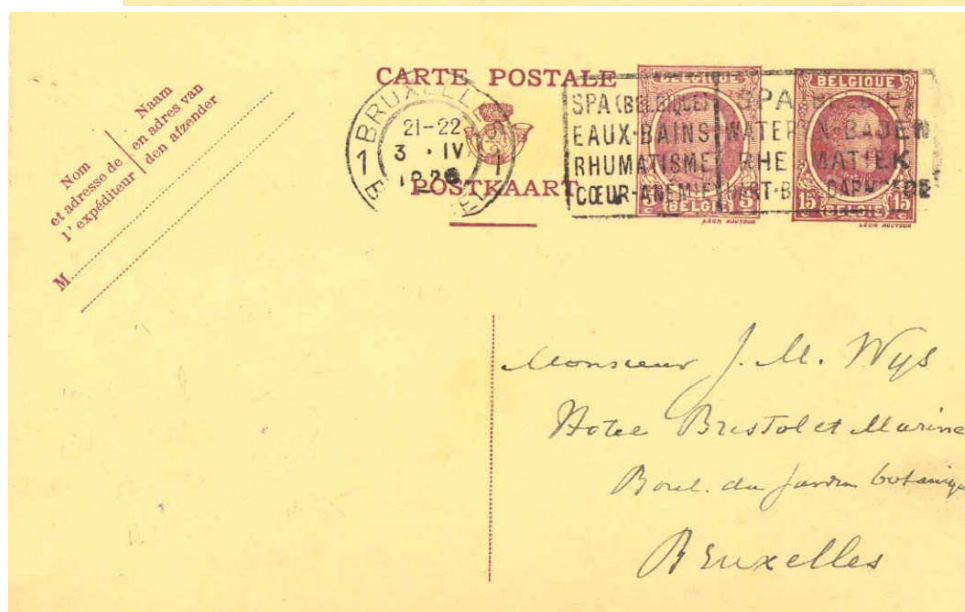 CARTE POSTALE
POSTKAART
Nom et adresse de l'expéditeur
Naam en adres van den afzender
M
1 BRUXELLES 1
21-22
3 . IV
SPA (BELGIQUE)
EAUX-BAINS
RHUMATISME
CŒUR-ANEMIE
SPA
WATER'N-BADEN
RHEUMATIEK
HART-B
BELGIQUE
5 BELGIE 5
LÉON HOUYOUX
BELGIQUE
15 BELGIE 15
Monsieur J. M. Wys
Hotel Bristol et Marine
Boul. du Jardin botaniq
Bruxelles